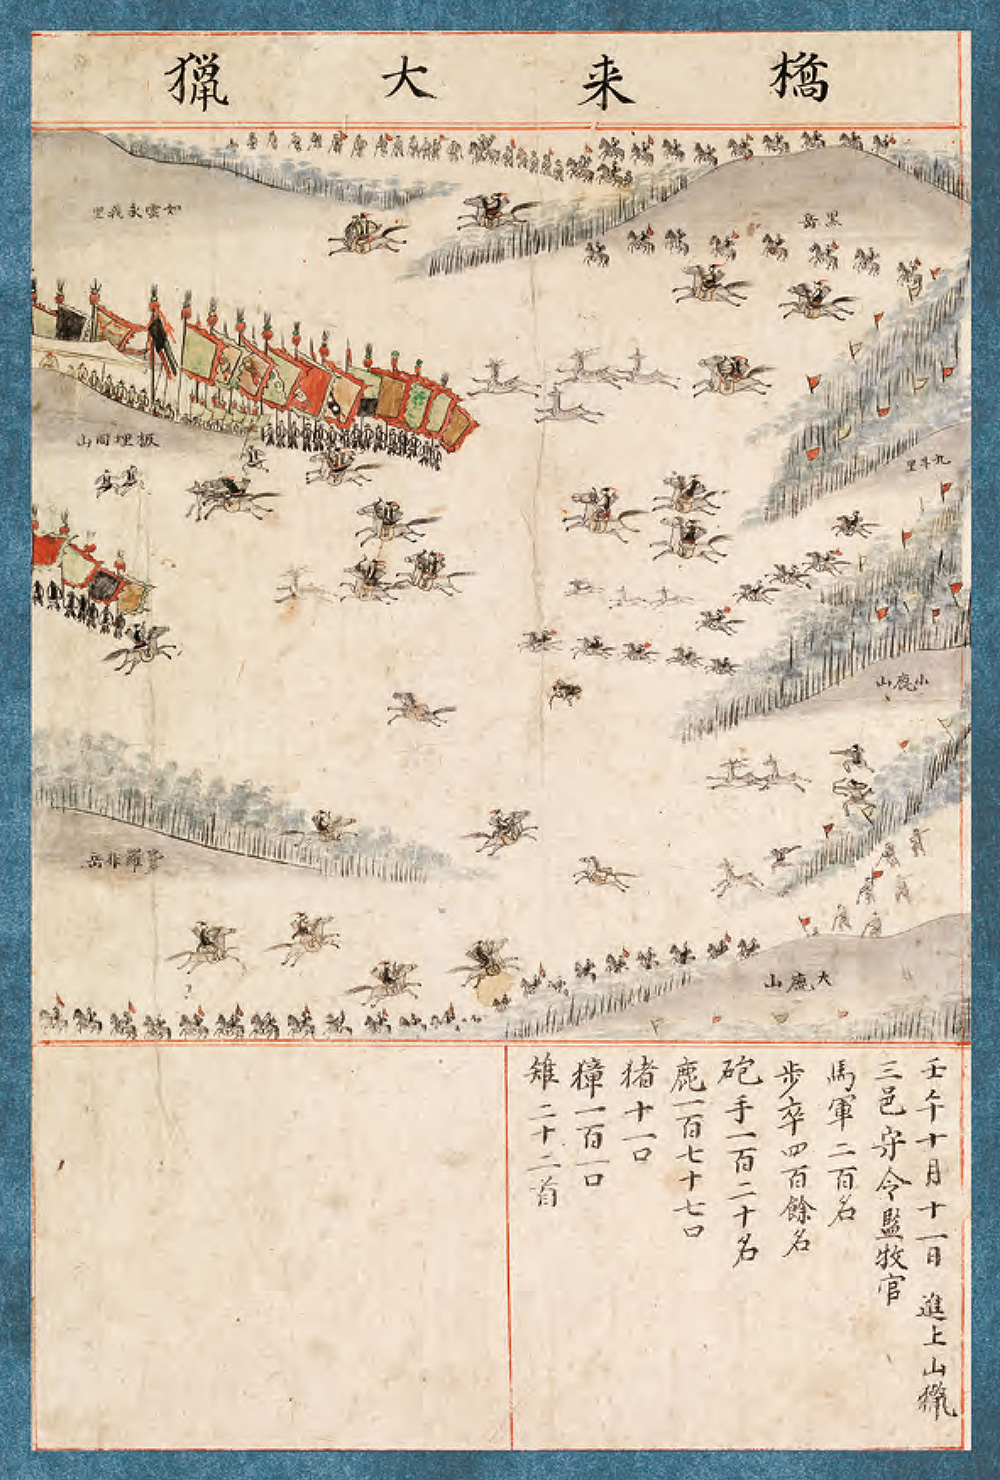 橋来大獵
如雲永我里
黑岳
板埋同山
九斗里
小鹿山
岳非羅
大鹿山
壬午十月十一日 進上山獵
三邑守令監牧官
馬軍二百名
步卒四百餘名
砲手一百二十名
鹿一百七十七口
猪十一口
獐一百一口
雉二十二首